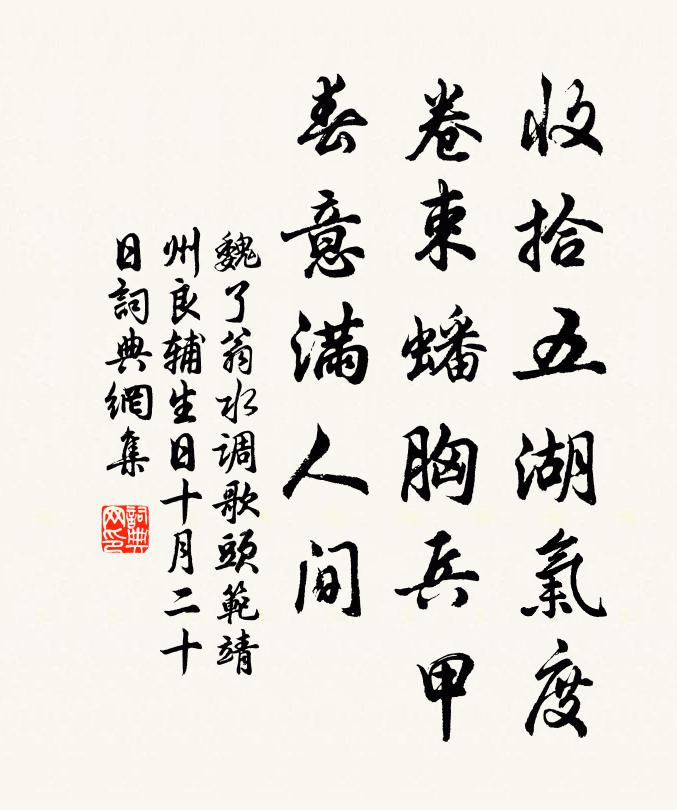 收拾五湖氣度
卷束蟠胸兵甲
春意滿人間
魏了翁水調歌頭範靖
州良輔生日十月二十
日詞典網集
詞典
网印